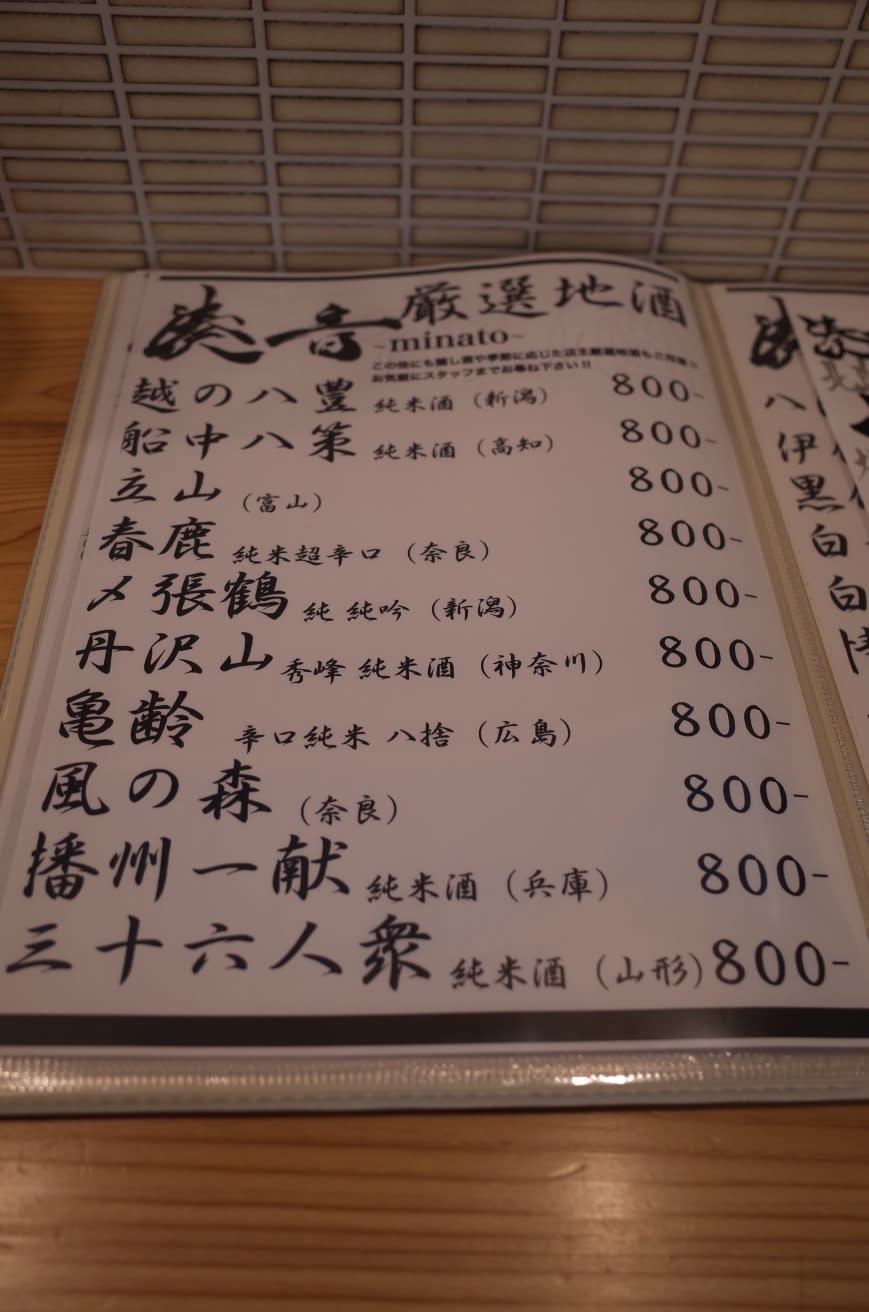 湊音 厳選地酒
~minato~
この他にも隠し酒や季節に応じた店主厳選地酒もご用意!!
お気軽にスタッフまでお尋ね下さい!!
越の八豊 純米酒 (新潟) 800-
船中八策 純米酒 (高知) 800-
立山 (富山) 800-
春鹿 純米超辛口 (奈良) 800-
〆張鶴 純 純吟 (新潟) 800-
丹沢山 秀峰 純米酒 (神奈川) 800-
亀齢 辛口純米 八拾 (広島) 800-
風の森 (奈良) 800-
播州一献 純米酒 (兵庫) 800-
三十六人衆 純米酒 (山形) 800-
八
伊
黒
白
白